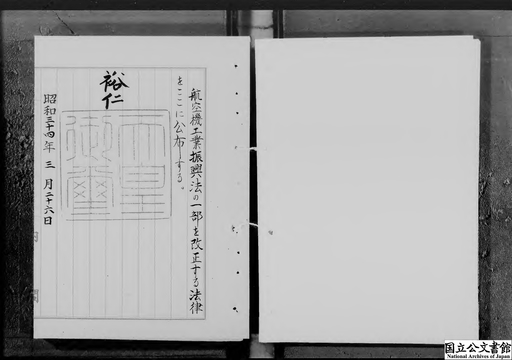 航空機工業振興法の一部を改正する法律
をここに公布する。
裕仁
天皇
御璽
昭和三十四年三月二十六日
国立公文書館
National Archives of Japan